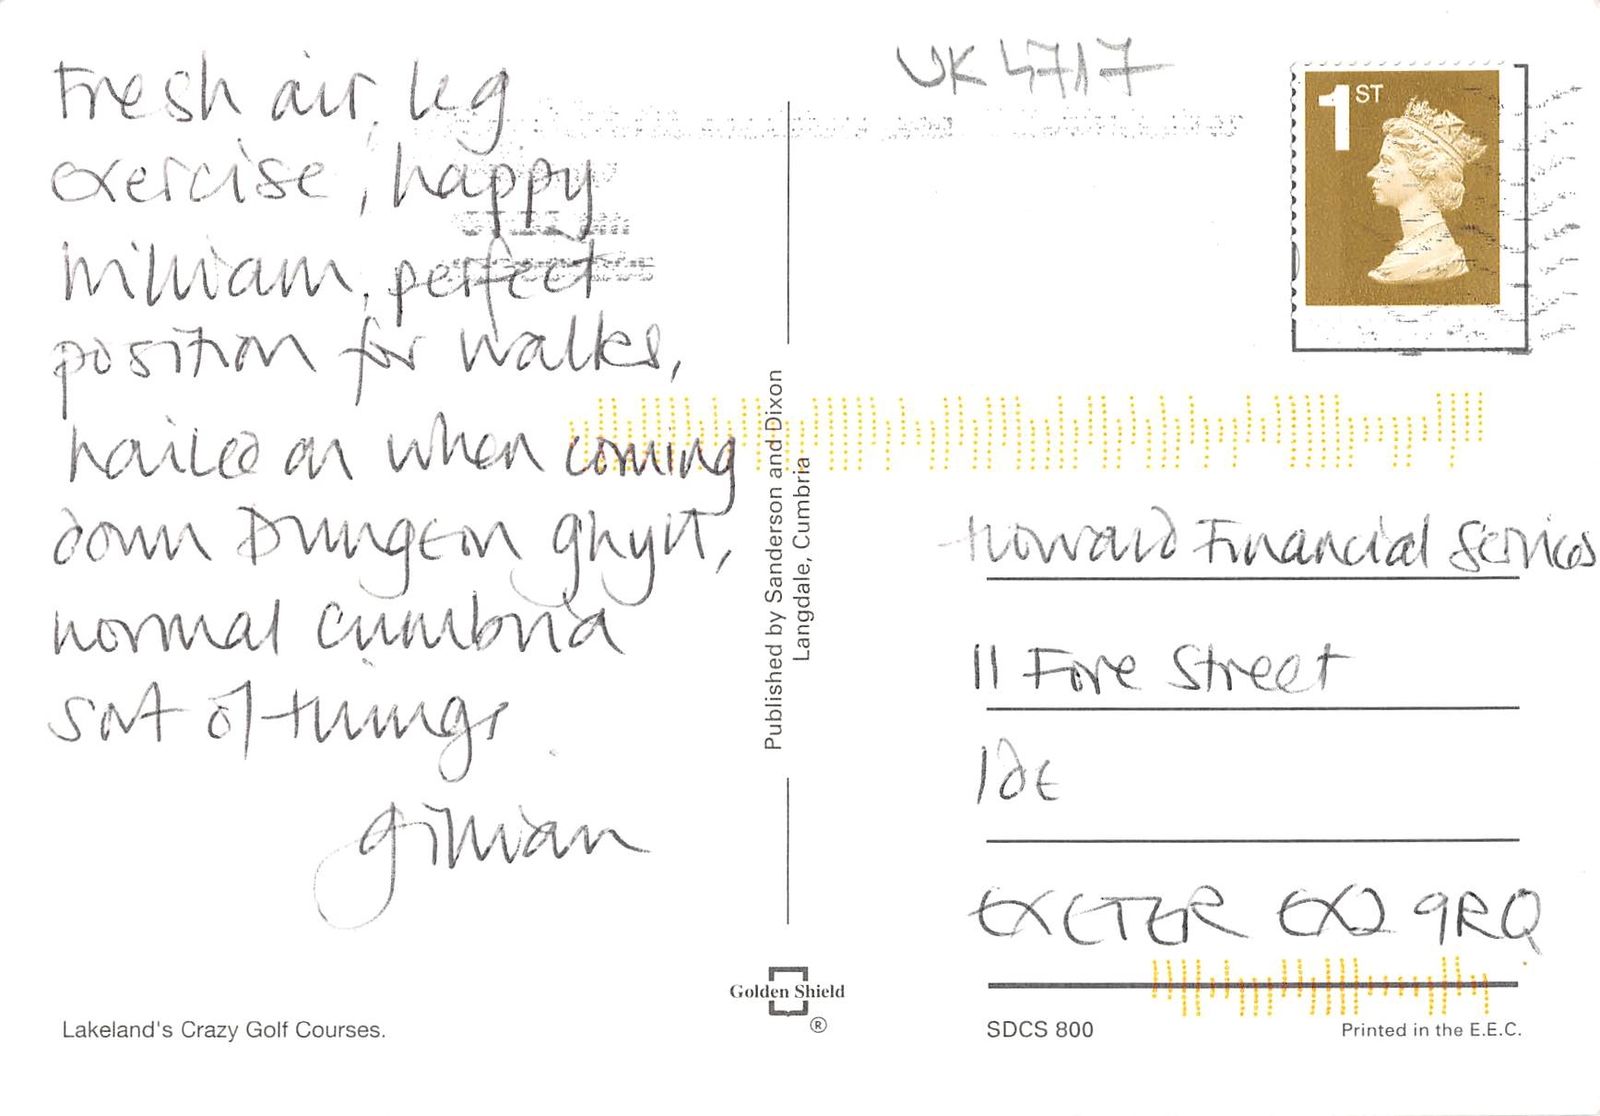 Fresh air, leg
exercise, happy
William, perfect
position for walks,
hailed on when coming
down Dungeon Ghyll,
normal Cumbria
sort of things
Gillian
Lakeland's Crazy Golf Courses.
Published by Sanderson and Dixon
Langdale, Cumbria
Golden Shield
®
UK 4717
1ST
Howard Financial Services
11 Fore Street
Ide
EXETER EX2 9RQ
SDCS 800
Printed in the E.E.C.